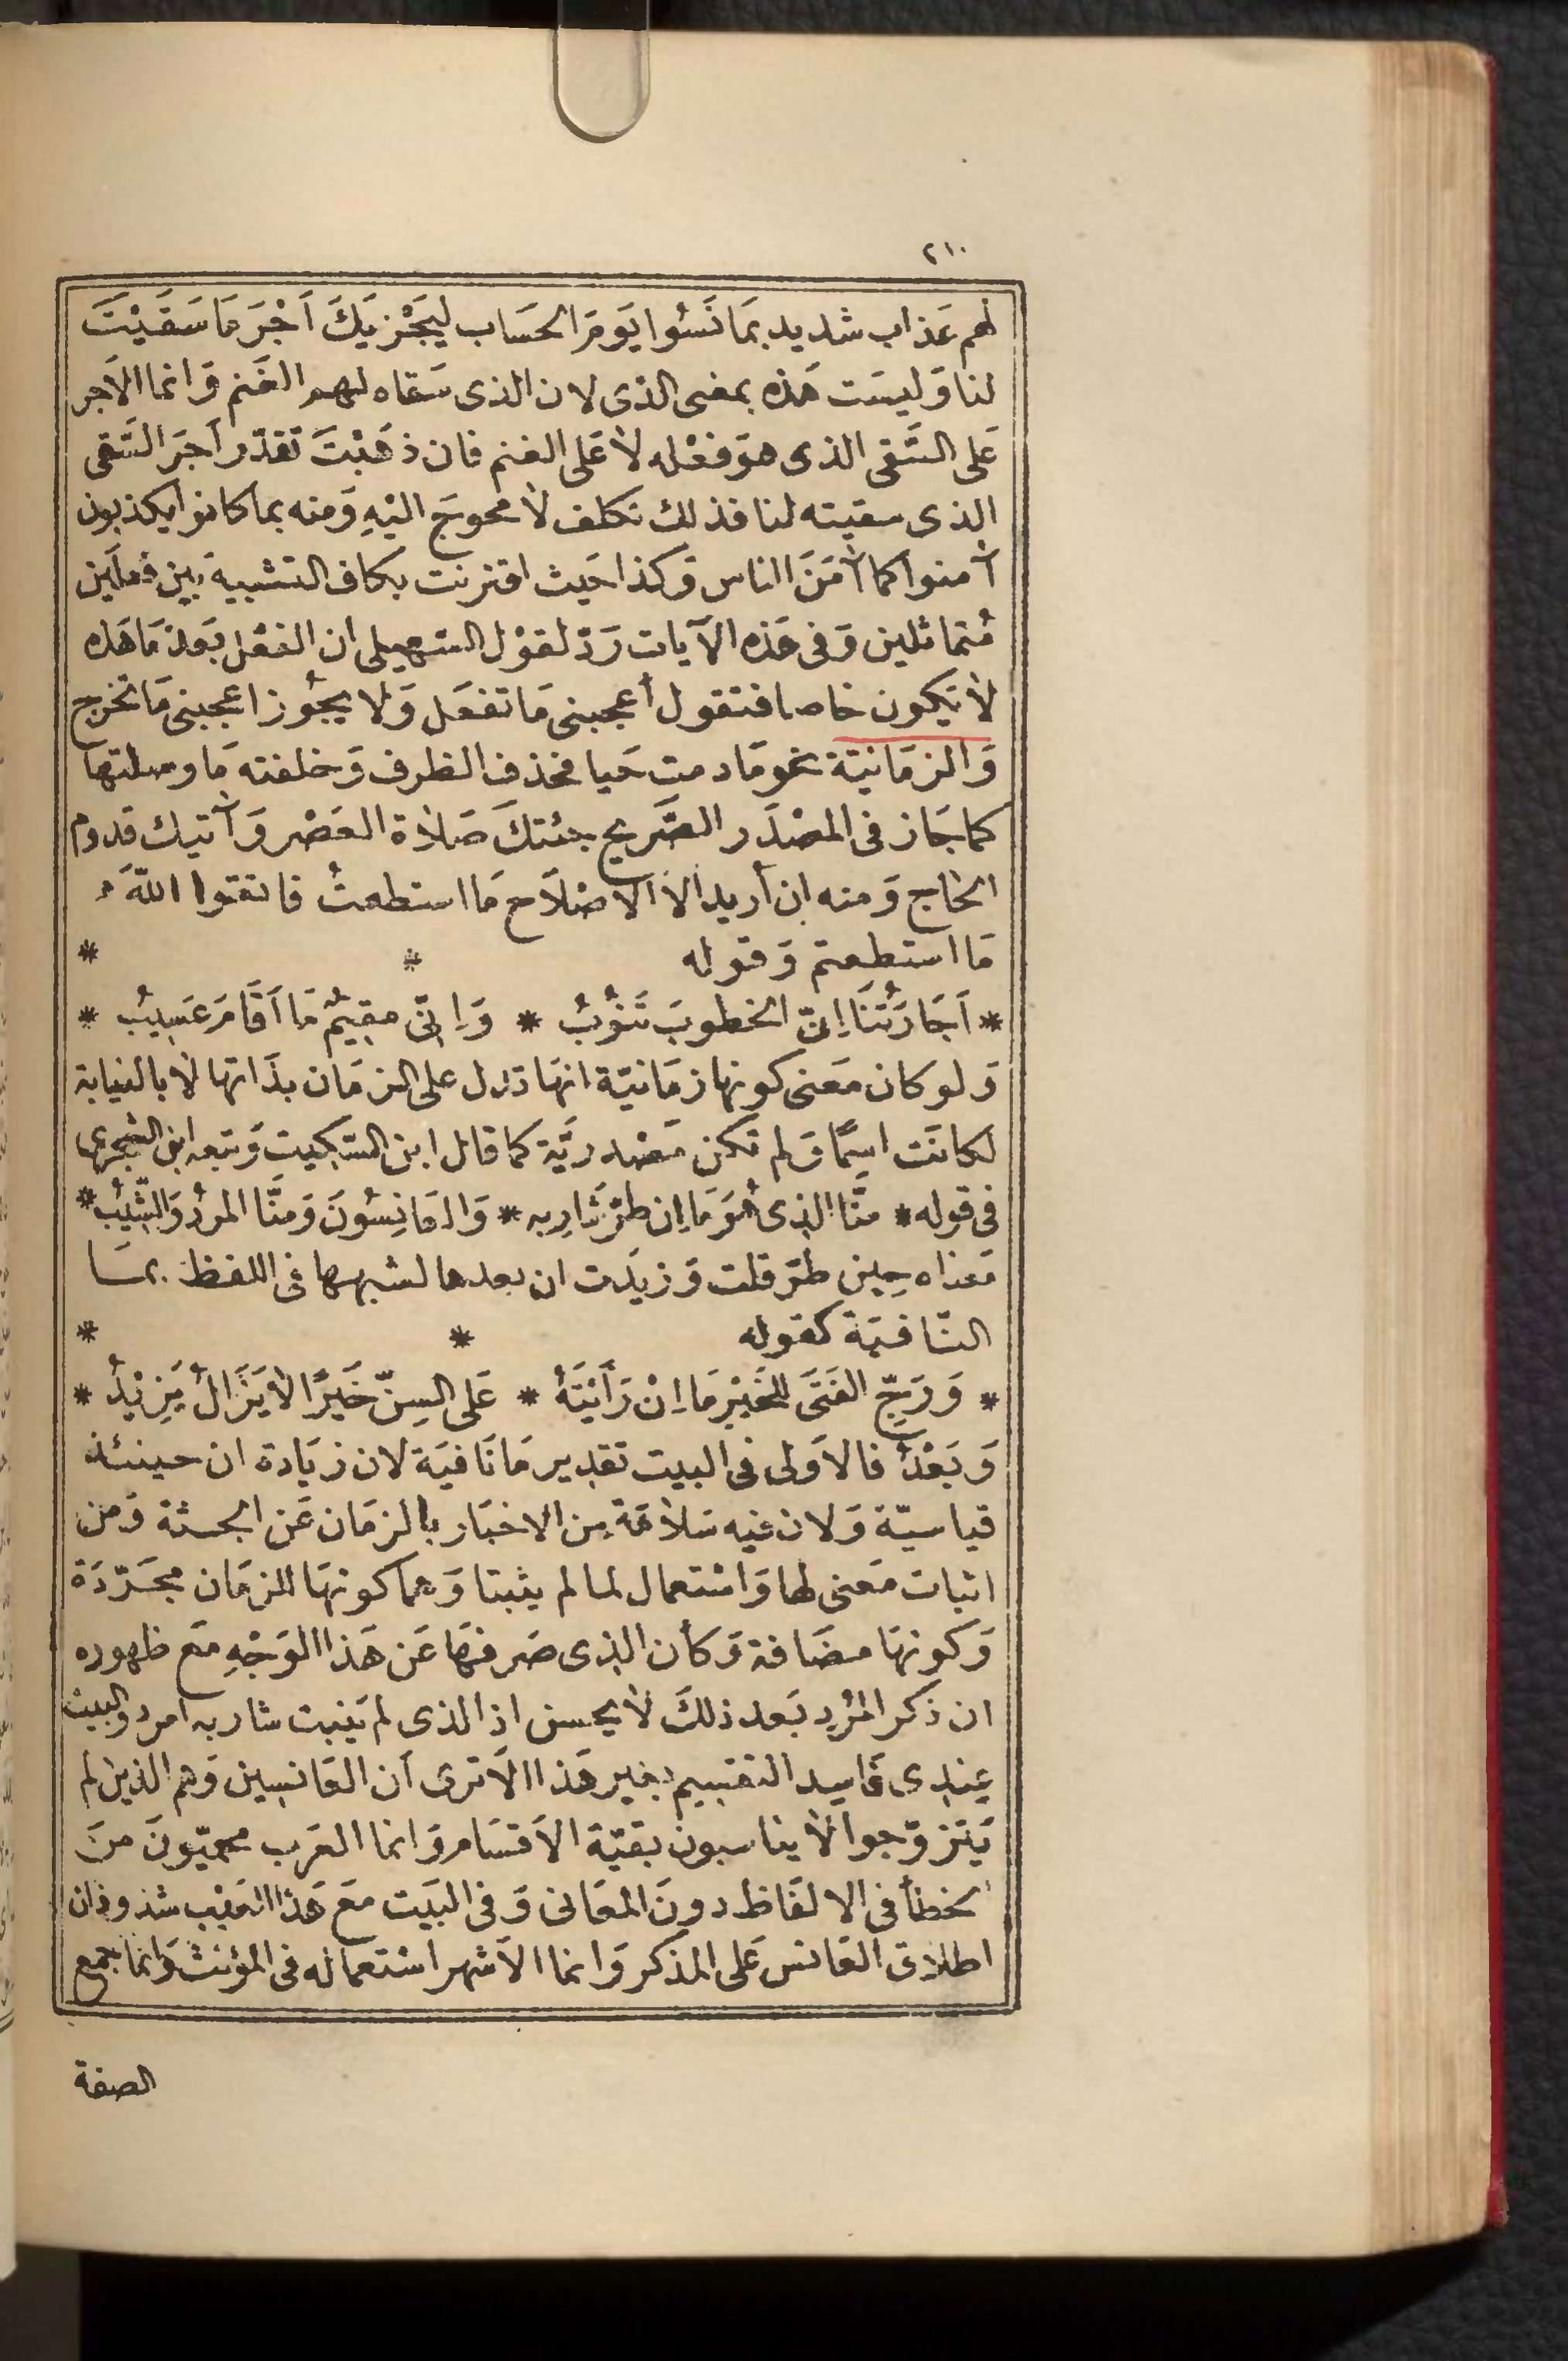 ٢١٠
لهم عذاب شديد بمَا نَسُوا يَومَ الحسَاب ليَجْزيَكَ اَجْرَ مَا سَقَيْتَ
لنا وَليسَت هَذه بمعنى الذى لان الذى سَقاه لهم الغَنم وَانما الاَجر
عَلى السَّقى الذى هوَ فعْله لاَ عَلى الغنم فان ذهَبْتَ تقدّر اَجرَ السَّقى
الذى سقيته لنا فذلك تكلف لاَ محوجَ اليْهِ وَمنه بما كانوا يكذبون
آمنوا كما آمَنَ الناس وَكذا حَيث اقترنت بكاف التشبيه بَين فعلَين
مُتماثلين وَفى هَذه الآيات رَدّ لقوْل السّهيلى ان الفعْل بَعدَ مَا هَذه
لاَ يَكون خاصا فتقول أعجبنى مَا تفعَل وَلاَ يجُوز اعجبنى مَا تخرج
وَالزمَانيّة نحو مَا دمت حَيا فحذف الظرف وَخلفته مَا وصلتها
كما جَاز فى المصْدَر الصَّريح جئتكَ صَلاَة العَصْر وَآتيك قدوم
الحاج وَمنه ان أريد الاَّ الاصْلاَح مَا استطعتُ فاتقوا اللّهَ
مَا استطعتم وَقوله * *
* اَجَارَتُنَا اِنّ الخطوبَ تَنُوْبُ * وَاِنّى مقِيْمٌ مَا اَقَامَ عَسِيبُ *
وَلو كان مَعنى كونها زمَانيّة انهَا تدل على الزمَان بذَاتها لاَ بالنيابة
لكانَت اسمًا وَلم تكن مَصْدريَّة كما قال ابن السّكيت وَتبعه ابن الشجرى
فى قوله * منَّا الذى هُوَ مَا اِن طرَّ شَارِبه * وَالعَانِسُونَ وَمنَّا المرْدُ وَالشِّيْبُ *
مَعناه حِين طرّ قلت وَزيدَت ان بعدها لشبهها فى اللفظ بمَا
النّافيَة كقوله * *
* وَرَجِّ الفَتَى للخَيْرِ مَا اِنْ رَأيْتَهُ * عَلى السِنّ خَيْرًا لاَ يَزَالُ يَزِيْدُ *
وَبَعْدُ فالاَولى فى البيت تقدير مَا نَافيَة لان زيَادة ان حينئذ
قياسيّة وَلان فيه سَلاَمَة مِن الاخبَار بالزمَان عَن الجثة وَمن
اثبات مَعنى لها وَاسْتعمال لما لم يثبتا وَهما كونهَا للزمَان مجَرّدَة
وَكونهَا مضَافة وَكأن الذى صَرفهَا عَن هَذا الوَجْهِ مَع ظهوره
ان ذكر المُرْدِ بَعد ذلكَ لاَ يحسن اذ الذى لم يَنبت شاربه امرد وَالبيت
عِندِى فَاسِد التقسيم بغير هَذا اَلاَ ترى أن العَانسِين وَهم الذين لم
يَتزوّجوا لاَ يناسبون بقيّة الاَقسَام وَانما العَرب محميّونَ منَ
الخطأ فى الالفَاظ دونَ المعَانى وَفى البَيت مَعَ هَذا العَيْب شذوذان
اطلاَق العَانس عَلى المذكر وَانما الاَشهر اسْتعماله فى المؤنث وَانما جمع
الصفة